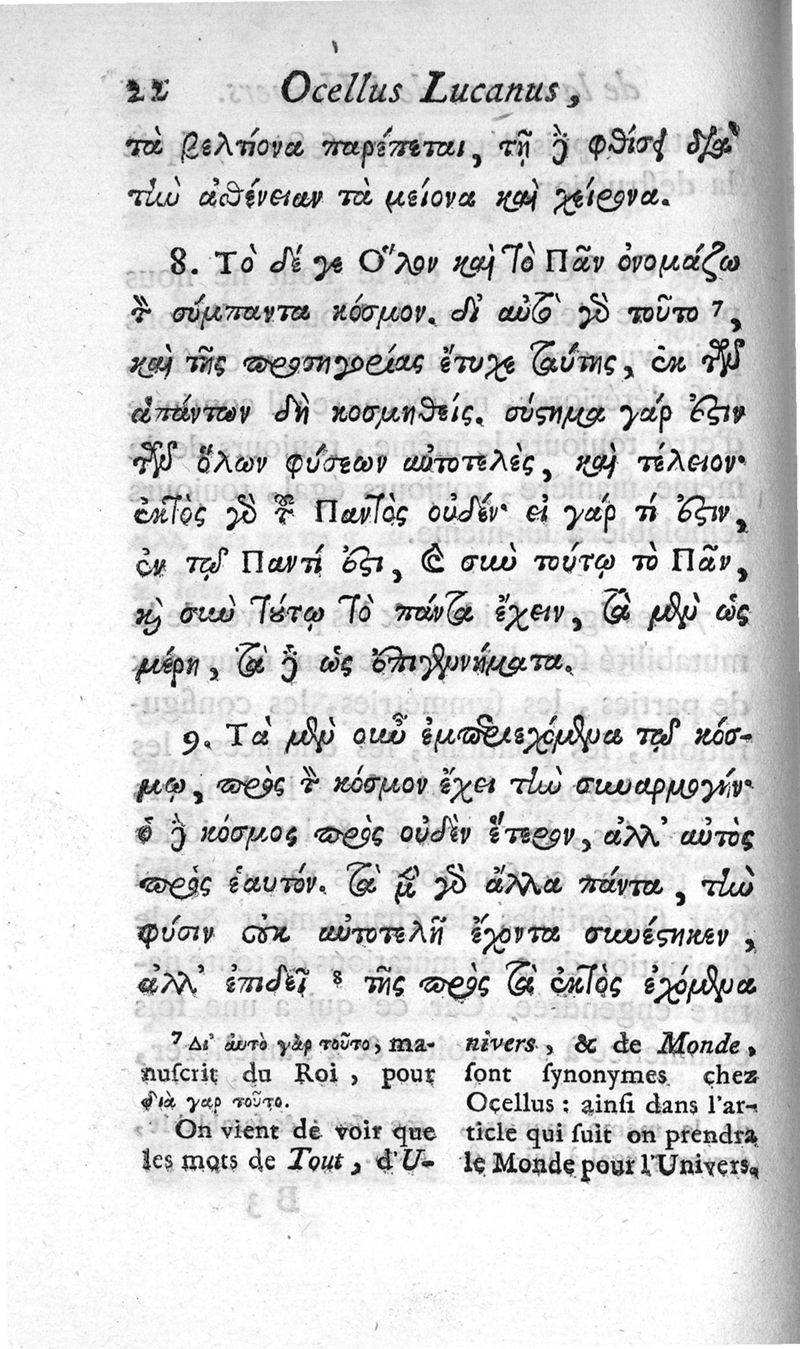 22 Ocellus Lucanus,
τὰ βελτίονα παρέπεται, τῇ δὲ φθίσει διὰ
τὴν ἀσθένειαν τὰ μείονα καὶ χείρονα.
8. Τὸ δέ γε Ὅλον καὶ τὸ Πᾶν ὀνομάζω
τὸν σύμπαντα κόσμον. δι' αὐτὸ γὸ τοῦτο ⁷,
καὶ τῆς προσηγορίας ἔτυχε ταύτης, ἐκ τῶν
ἁπάντων δὴ κοσμηθείς. σύστημα γάρ ἐστιν
τῶν ὅλων φύσεων αὐτοτελὲς, καὶ τέλειον·
ἐκτὸς γὸ τοῦ Παντὸς οὐδέν· εἰ γάρ τί ἐστιν,
ἐν τῷ Παντί ἐστι, καὶ σὺν τούτῳ τὸ Πᾶν,
καὶ σὺν τούτῳ τὸ πάντα ἔχειν, τὰ μὲν ὡς
μέρη, τὰ δὲ ὡς ἐπιγεννήματα.
9. Τὰ μὲν οὖν ἐμπεριεχόμενα τῷ κόσ-
μῳ, πρὸς τὸν κόσμον ἔχει τὴν συναρμογήν·
ὁ δὲ κόσμος πρὸς οὐδὲν ἕτερον, ἀλλ' αὐτὸς
πρὸς ἑαυτόν. τὰ μὲν γὸ ἄλλα πάντα, τὴν
φύσιν οὐκ αὐτοτελῆ ἔχοντα συνέστηκεν,
ἀλλ' ἐπιδεῖ ⁸ τῆς πρὸς τὰ ἐκτὸς ἐχόμενα
⁷ Δι' ἀυτὸ γὰρ τοῦτο, ma-
nuſcrit du Roi, pour
διὰ γαρ τοῦτο.
On vient de voir que
les mots de Tout, d'U-
nivers, & de Monde,
ſont ſynonymes chez
Ocellus : ainſi dans l'ar-
ticle qui ſuit on prendra
le Monde pour l'Univers.